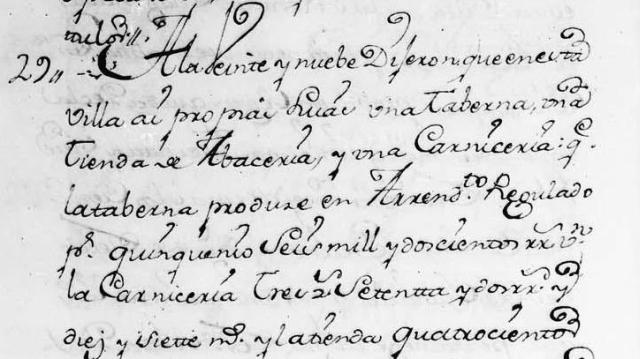 29,, A la veinte y nuebe Dijeron que en esta
villa ai propias suias vna Taberna, vna
Tienda de Abaceria, y vna Carniceria: q.e
la taberna produze en Arrend.to Regulado
p.r quinquenio Seis mill y doscientos rr.s v.n
la Carniceria Trez.s Setentta y dos rr.s y
diez y siette m.s y la tienda quatrocientos